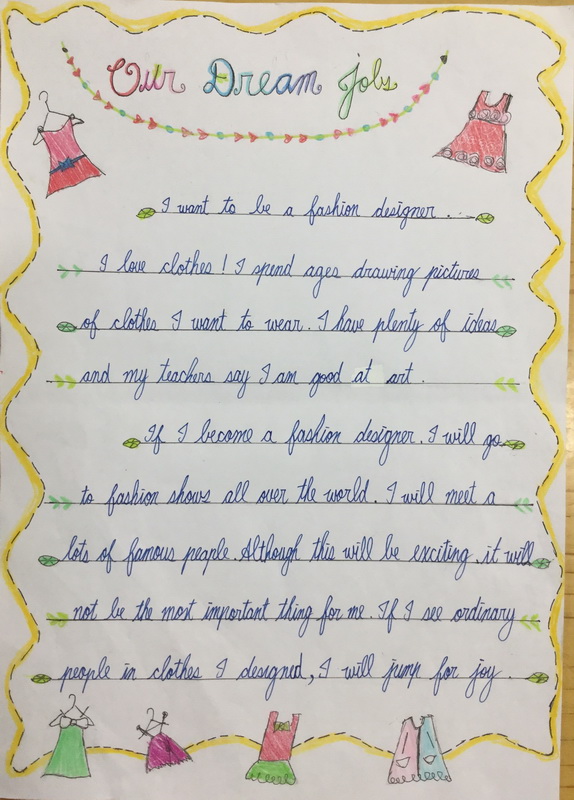 Our Dream Jobs
I want to be a fashion designer ....
I love clothes ! I spend ages drawing pictures
of clothes I want to wear. I have plenty of ideas
and my teachers say I am good at art .
If I become a fashion designer. I will go
to fashion shows all over the world . I will meet a
lots of famous people. Although this will be exciting . it will
not be the most important thing for me . If I see ordinary
people in clothes I designed, I will jump for joy .